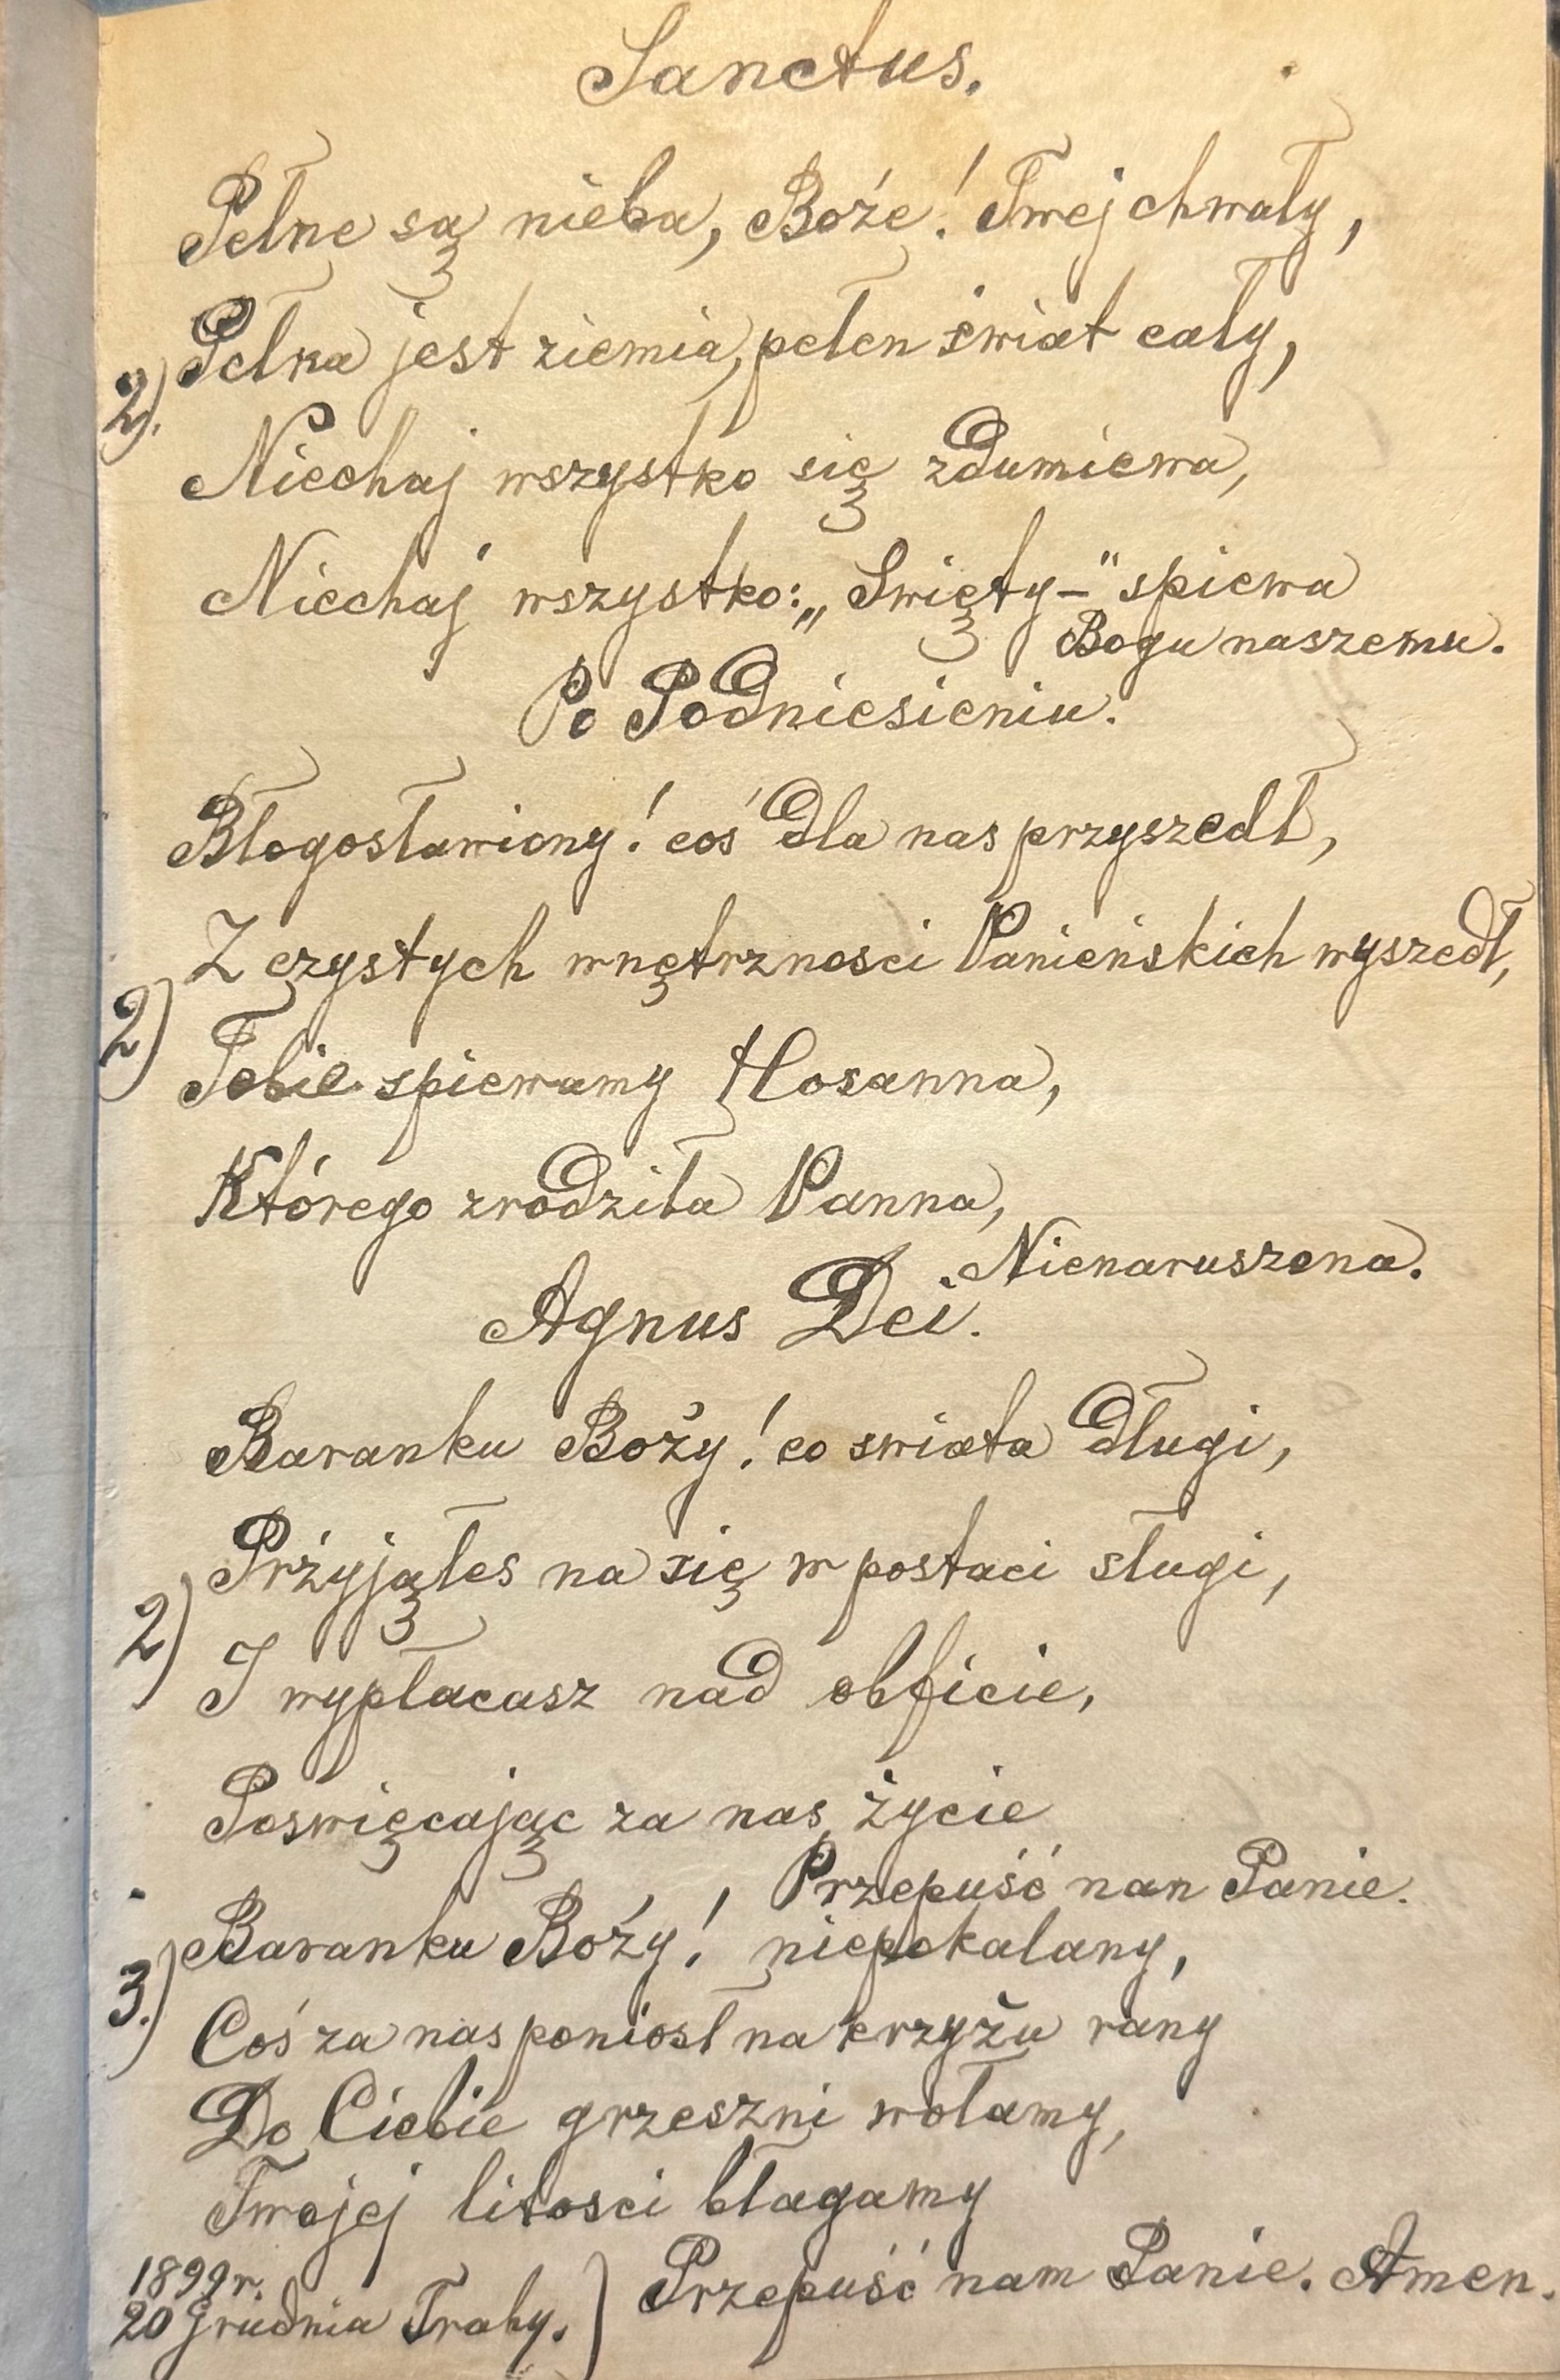 Sanctus.
Pełne są nieba, Boże! Twej chwały,
Pełna jest ziemia, pełen świat cały,
2).
Niechaj wszystko się zdumiewa,
Niechaj wszystko: „Swięty-" spiewa
Bogu naszemu.
Po Podniesieniu.
Błogosławiony! coś dla nas przyszedł,
Z czystych wnętrzności Panieńskich wyszedł,
2)
Tobie spiewamy Hosanna,
Którego zrodziła Panna,
Nienaruszona.
Agnus Dei.
Baranku Boży! co swiata długi,
Przyjąłes na się w postaci sługi,
2)
I wypłacasz nad obficie,
Poswięcając za nas życie
Przepuść nan Panie.
Baranku Boży! niepokalany,
3.)
Coś za nas poniósł na krzyżu rany
Do Ciebie grzeszni wołamy,
Twojej litosci błagamy
Przepuść nam Panie. Amen.
1899 r.
20 Grudnia Traby.